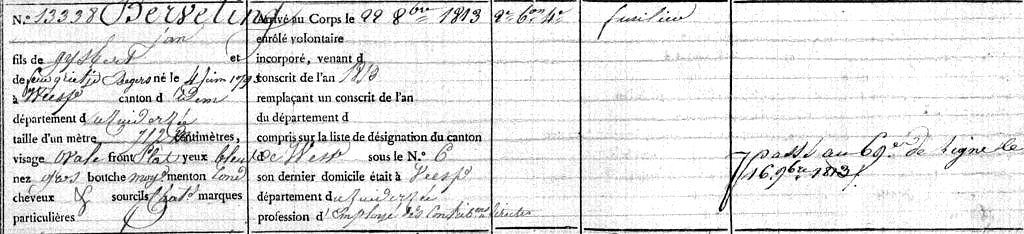 N.º 13338 Berveling
jan
fils de gysbert et
de feue grietje Begers né le 4 juin 179
à Weesp canton d Idem
département d u Zuiderzée
taille d'un mètre, 712 centimètres,
visage Ovale front Plat yeux bleus
nez gros bouche moy.e menton rond
cheveux & sourcils Chat.s marques
particulières
Arrivé au Corps le 22 8bre 1813
enrôlé volontaire
incorporé, venant d
conscrit de l'an 1813
remplaçant un conscrit de l'an
du département d
compris sur la liste de désignation du canton
d e Weesp sous le N.º 6
son dernier domicile était à Weesp
département d u Zuiderzée
profession d'Employé des Contrib.ons directes
2e 6on 4e
fusilier
passé au 69.e de ligne le
16 9bre 1813